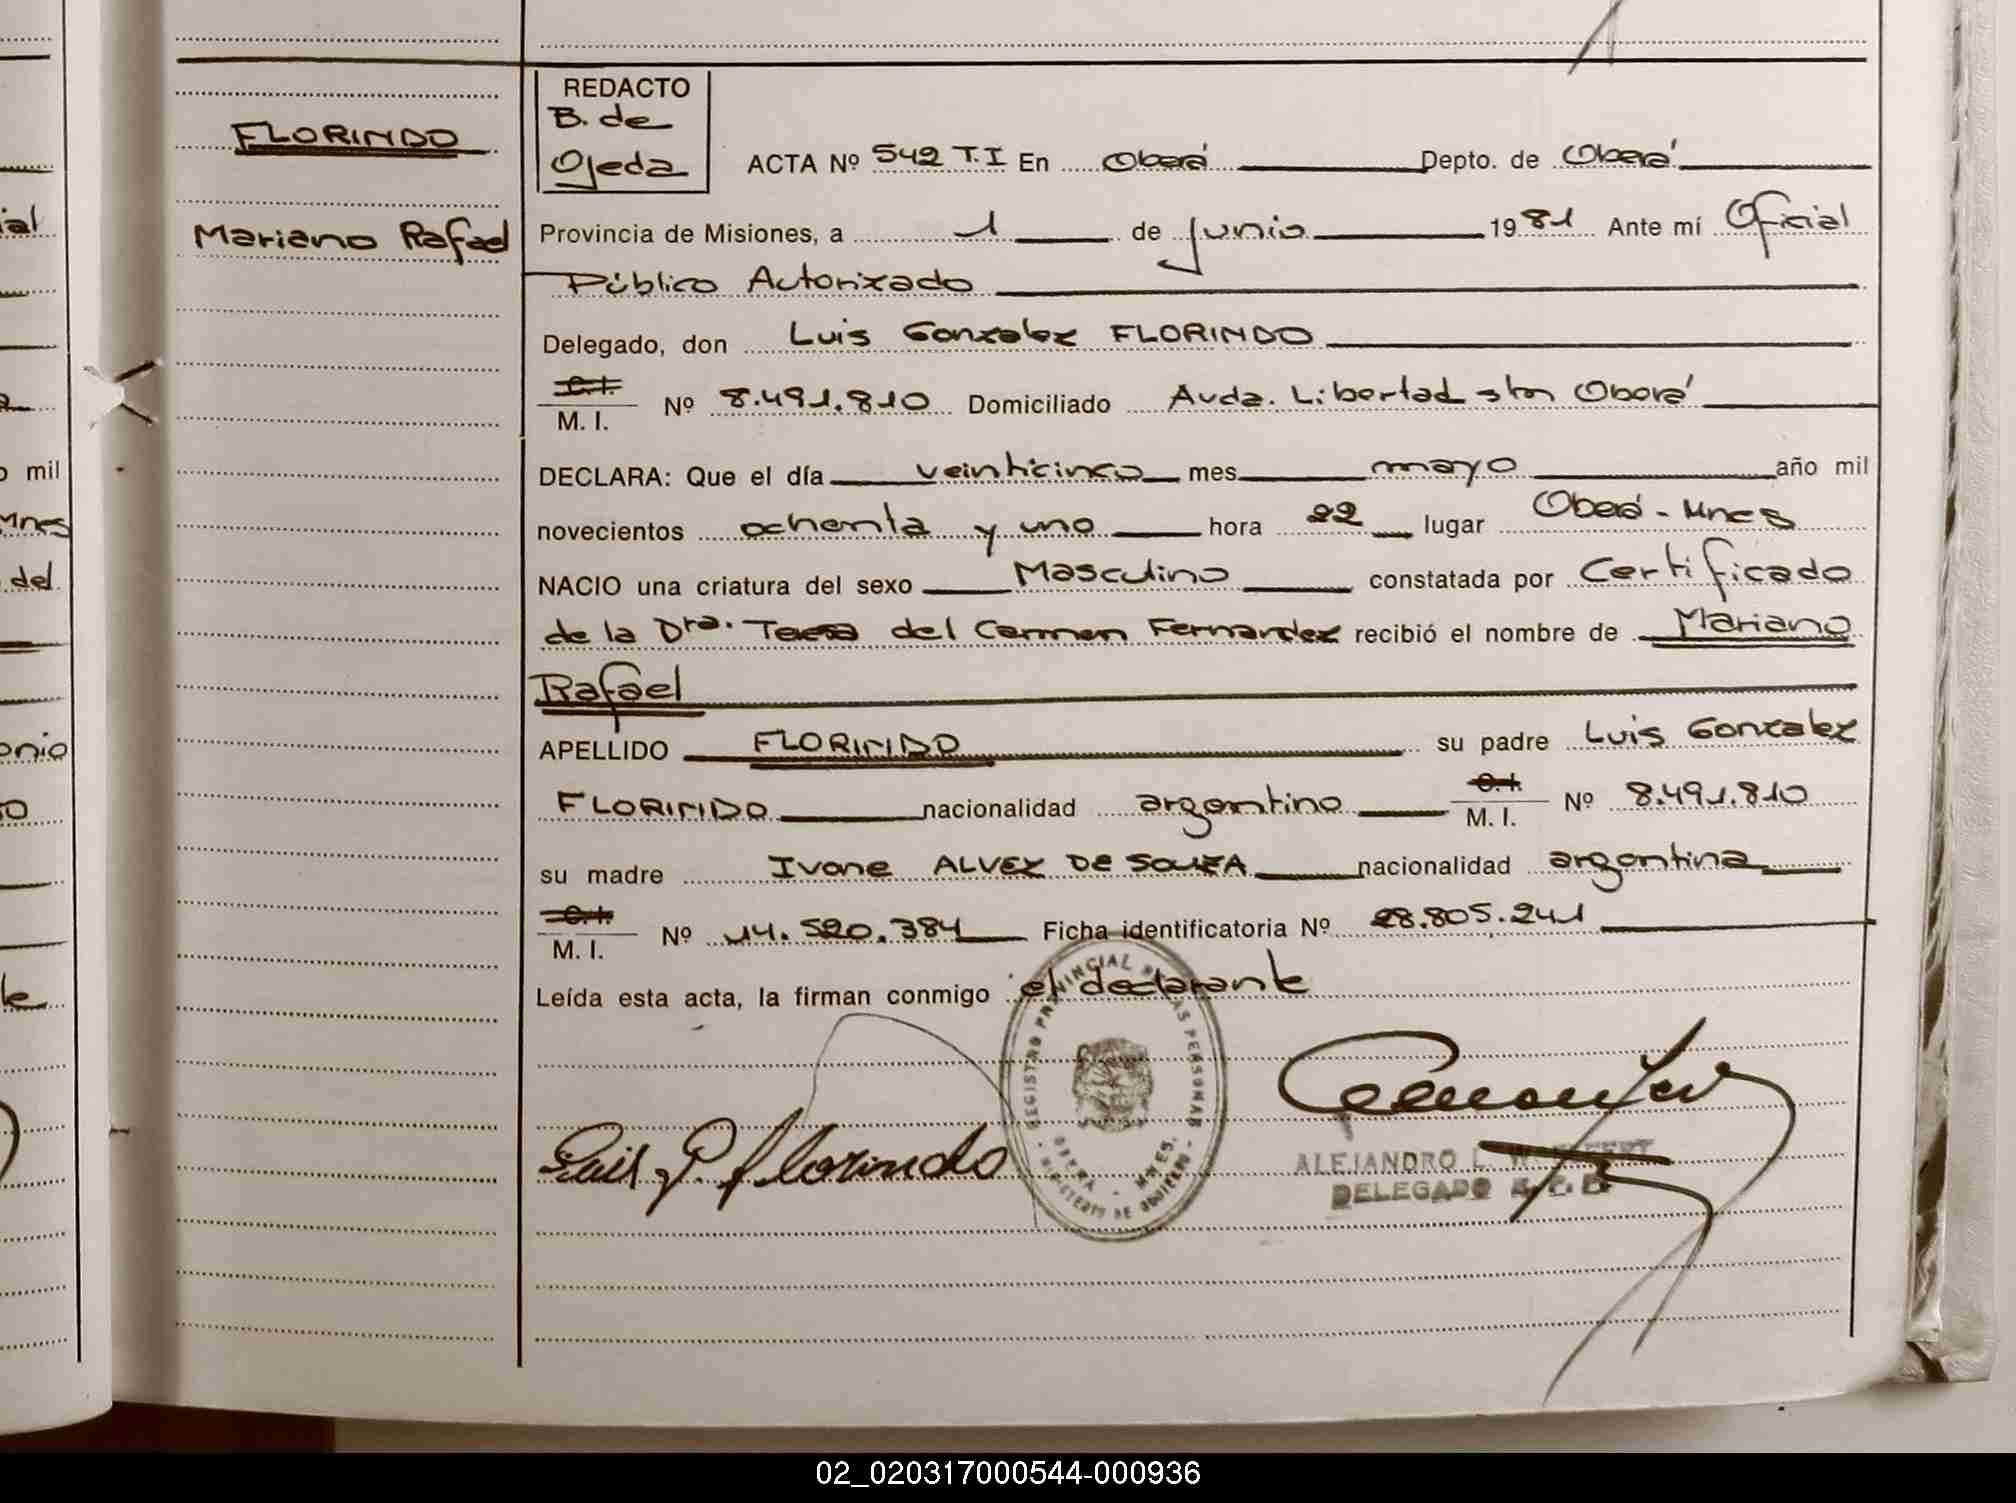 FLORINDO
Mariano Rafael
REDACTO
B. de
Ojeda
ACTA Nº 542 T.I En Oberá Depto. de Oberá
Provincia de Misiones, a 1 de junio 1981 Ante mí Oficial
Público Autorizado
Delegado, don Luis Gonzalez FLORINDO
C.I.
M. I. Nº 8.491.810 Domiciliado Avda. Libertad s/n Oberá
DECLARA: Que el día veinticinco mes mayo año mil
novecientos ochenta y uno hora 22 lugar Oberá - Mnes
NACIO una criatura del sexo Masculino constatada por Certificado
de la Dra. Teresa del Carmen Fernandez recibió el nombre de Mariano
Rafael
APELLIDO FLORINDO su padre Luis Gonzalez
FLORINDO nacionalidad argentino C.I. M. I. Nº 8.491.810
su madre Ivone ALVEZ DE SOUZA nacionalidad argentina
C.I.
M. I. Nº 14.520.384 Ficha identificatoria Nº 28.805.241
Leída esta acta, la firman conmigo el declarante
REGISTRO PROVINCIAL DE LAS PERSONAS
OBERA - MNES.
MINISTERIO DE GOBIERNO
Luis G. Florindo
ALEJANDRO L.
DELEGADO
ial
mil
Mnes
del
onio
02_020317000544-000936